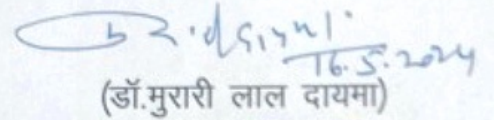 16.5.2024
(डॉ.मुरारी लाल दायमा)